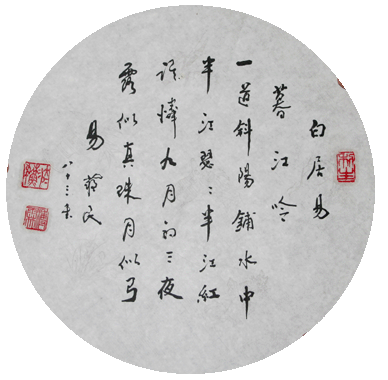 白居易
暮江吟
一道斜陽鋪水中
半江瑟〻半江紅
誰憐九月初三夜
露似真珠月似弓
易 民
八十三叟